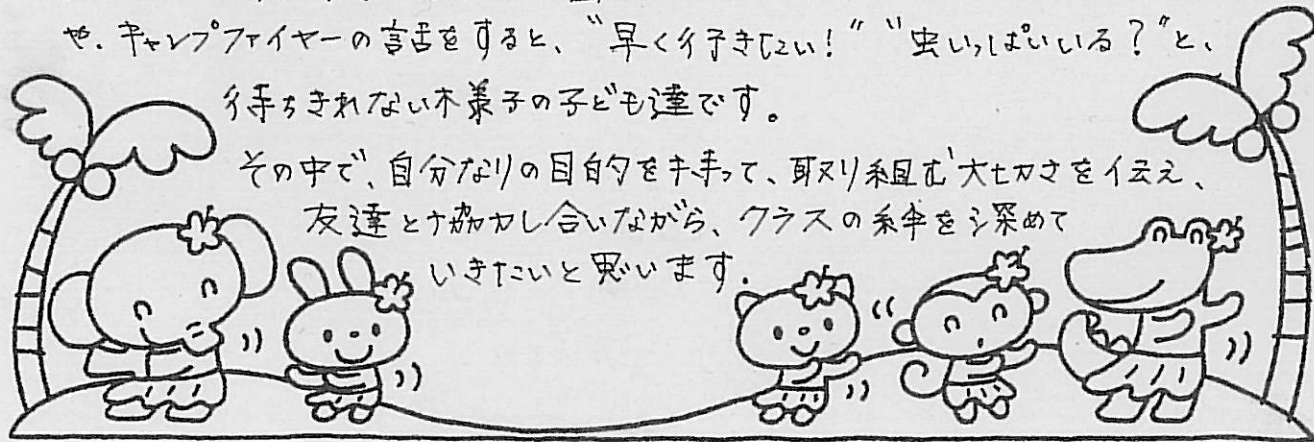 や、キャンプファイヤーの話をすると、“早く行きたい！”“虫いっぱいいる？”と、
待ちきれない様子の子ども達です。
その中で、自分なりの目的を持って、取り組む大切さを伝え、
友達と協力し合いながら、クラスの絆を深めて
いきたいと思います.